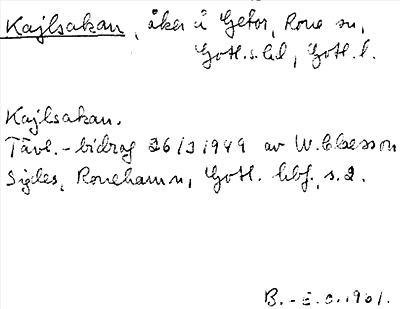 Kajlsakan, åker i Getor, Rone sn,
Gotl. s. hd, Gotl. l.
Kajlsakan.
Tävl.-bidrag 26/3 1949 av W. Claesson
Sigdes, Ronehamn, Gotl. hbf., s. 2.
B.-E. O. 1961.